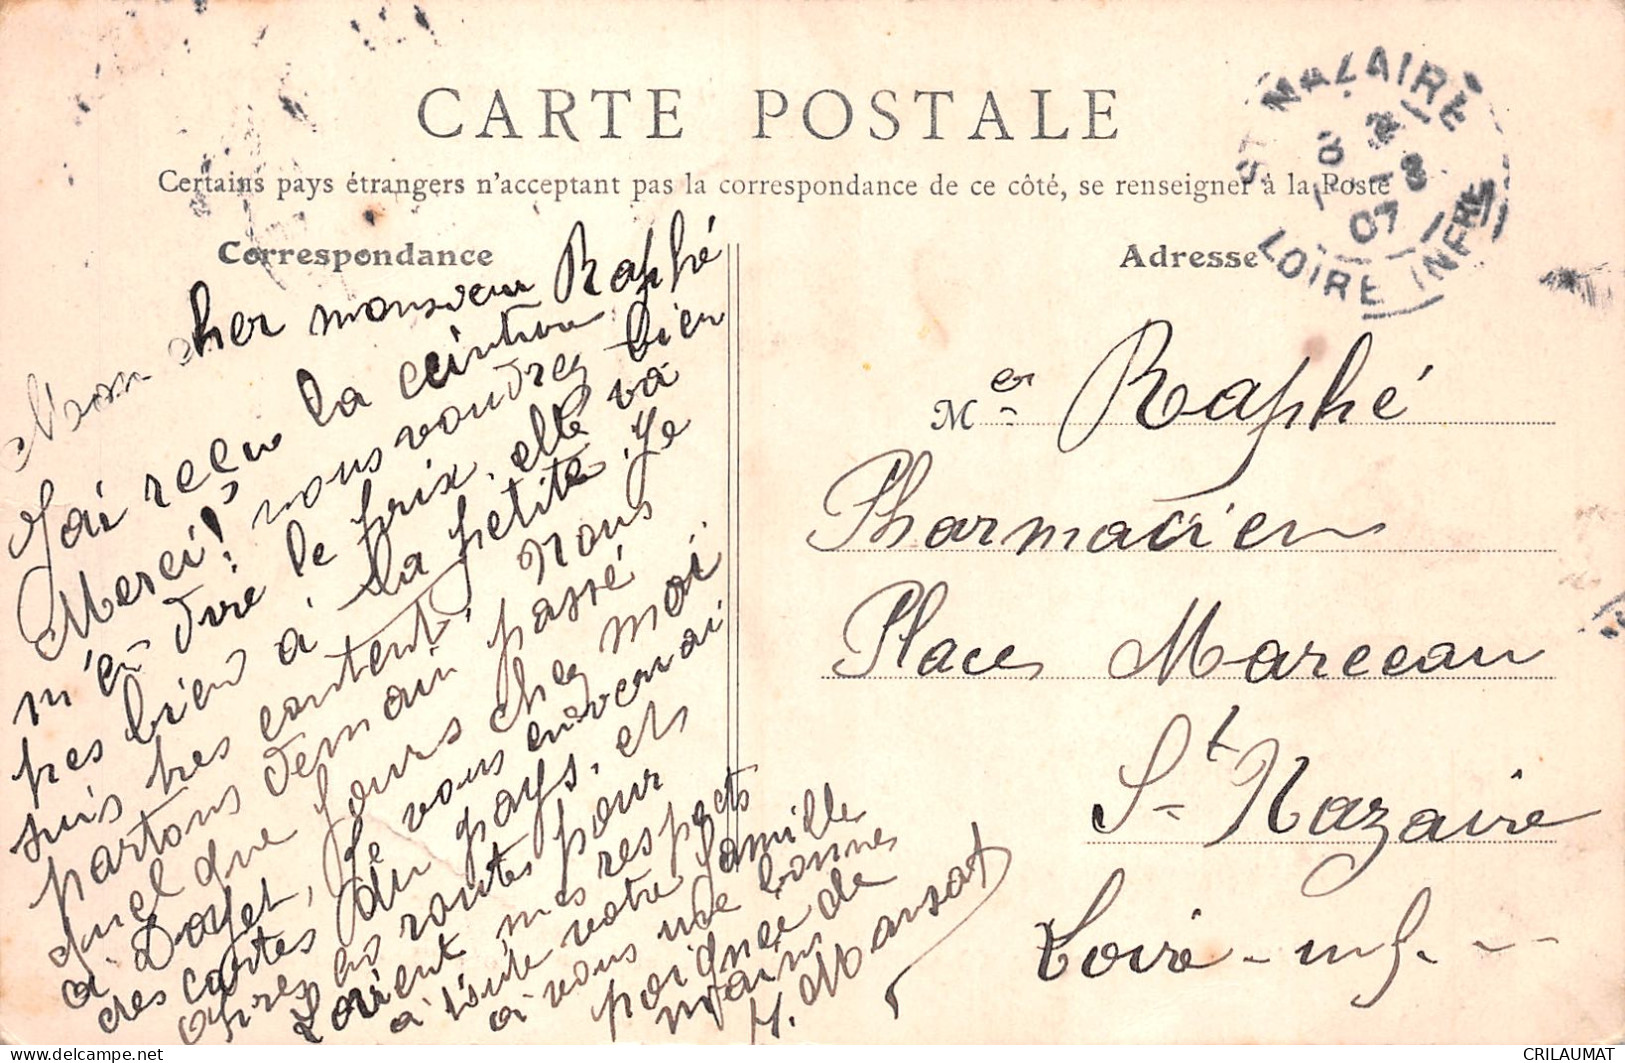 CARTE POSTALE
Certains pays étrangers n'acceptant pas la correspondance de ce côté, se renseigner à la Poste
Correspondance
Adresse
ST NAZAIRE
8 8
07
LOIRE INFRE
Mon cher monsieur Raphé
J'ai reçu la ceinture
Merci! vous voudrez bien
m'en dire le prix. elle va
tres bien à la petite. Je
suis tres contente. nous
partons demain passé
quel que jours chez moi
a Doyet, Je vous enverrai
des cartes du pays. et
apres en route pour
Lorient mes respects
à toute votre famille
a vous une bonne
poignee de
main
Y. Marsat
Mer Raphé
Pharmacien
Place Marceau
St Nazaire
Loire-inf.
delcampe.net
CRILAUMAT